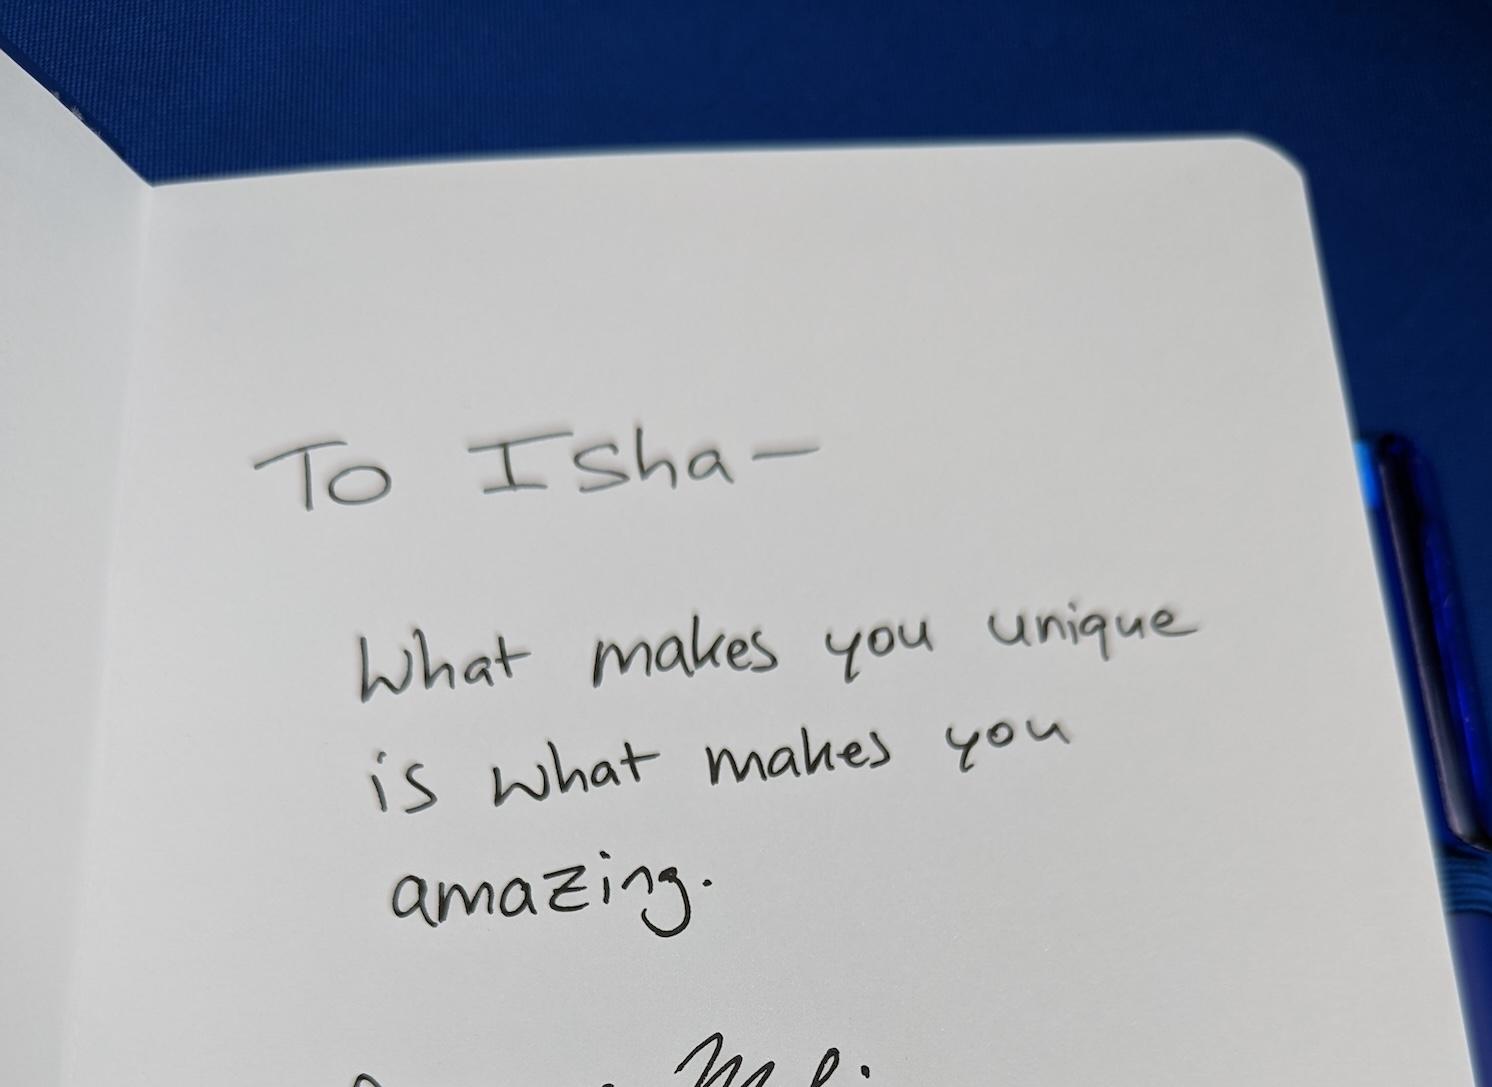 To Isha—
What makes you unique
is what makes you
amazing.